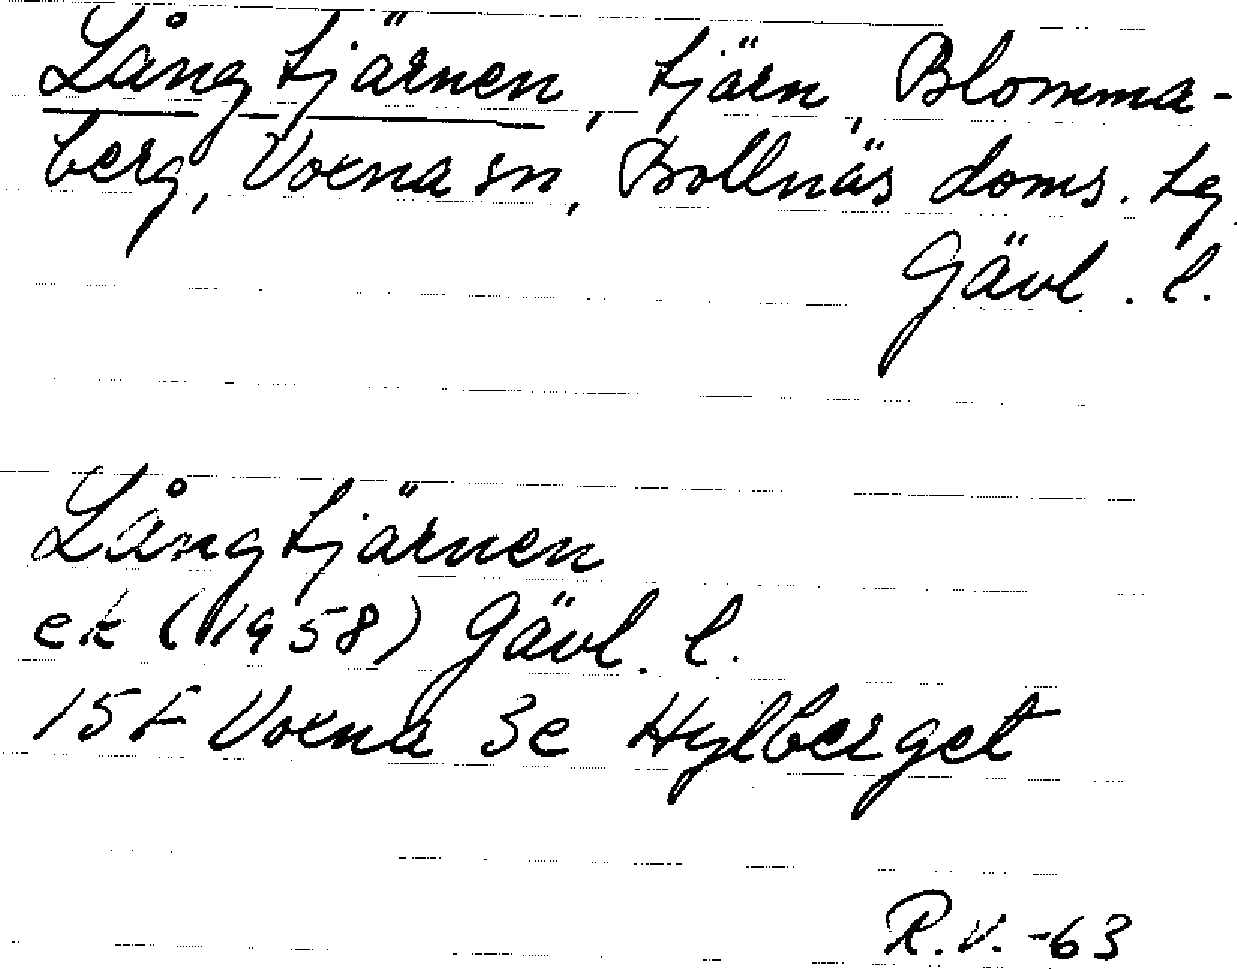 Långtjärnen, tjärn, Blomma-
berg, Voxna sn, Bollnäs doms. tg
Gävl. l.
Långtjärnen
ek (1958) Gävl. l.
15 F Voxna 3e Hylberget
R.V. -63